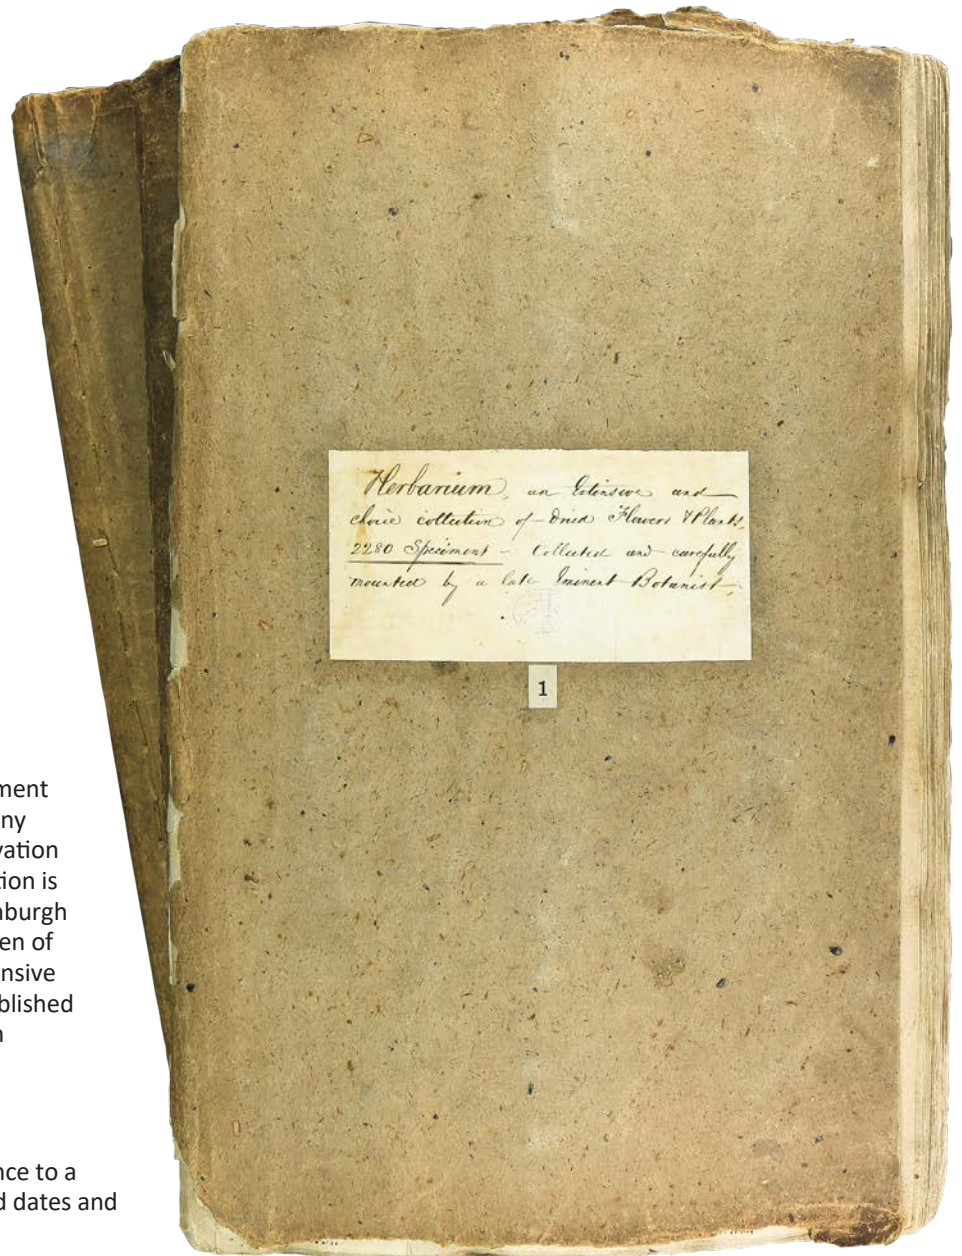 Herbarium, an Extensive and
choice collection of Dried Flowers & Plants,
2280 Specimens – Collected and carefully
mounted by a late Eminent Botanist,
1
ment
ny
vation
tion is
nburgh
en of
ensive
blished
n
nce to a
d dates and